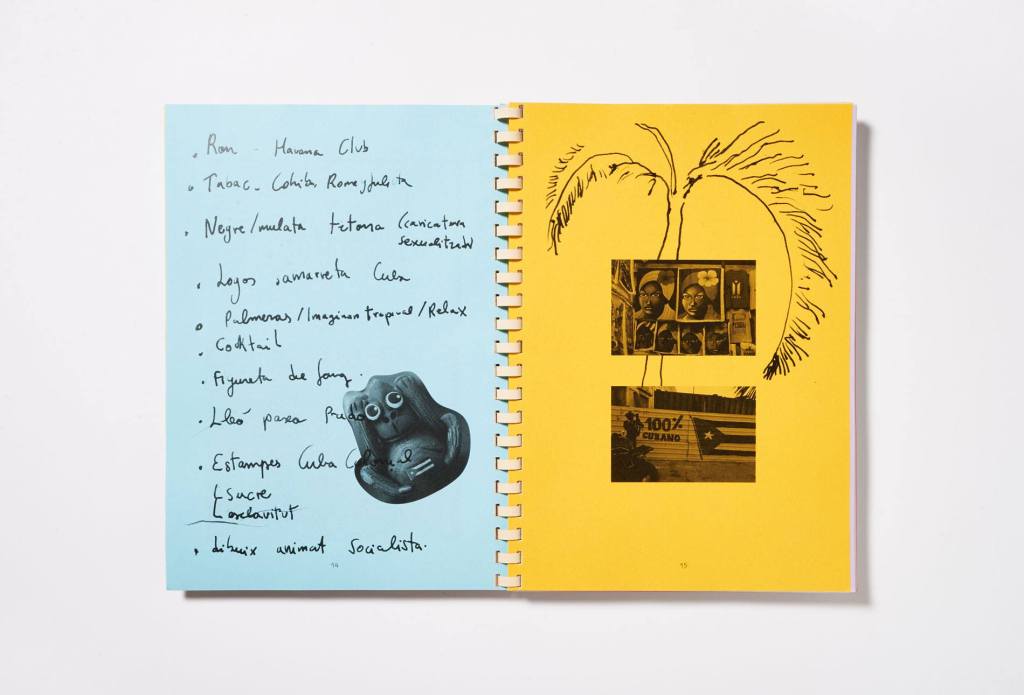 . Ron - Havana Club
. Tabac - Cohiba, Romeo y Julieta
. Negre/mulata tetona (caricatura
sexualitzada)
. Logos samarreta Cuba
. Palmeras/Imaginari tropical/Relax
. Cocktail
. Figureta de fang.
. Lleó paseo Prado
. Estampes Cuba Colonial
Sucre
esclavitut
. dibuix animat socialista.
14
100%
CUBANO
15